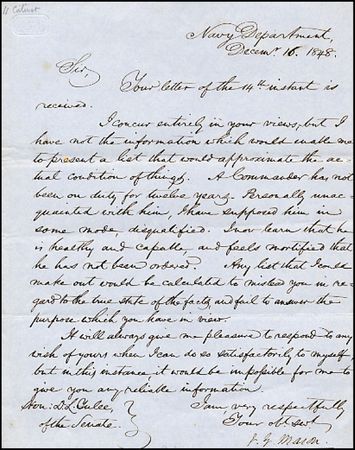 Navy Department,
Decemr. 16. 1848.
Sir,
Your letter of the 14th instant is
received.
I concur entirely in your views, but I
have not the information which would enable me
to present a list that would approximate the ac-
tual condition of things. A Commander has not
been on duty for twelve years. Personally unac-
quainted with him, I have supposed him in
some mode, disqualified. I now learn that he
is healthy and capable and feels mortified that
he has not been ordered. Any list that I could
make out would be calculated to mislead you in re-
gard to the true state of the facts, and fail to answer the
purpose which you have in view.
It will always give me pleasure to respond to any
wish of yours when I can do so satisfactorily to myself
but in this instance it would be impossible for me to
give you any reliable information.
Hon: D. L. Yulee,
of the Senate.
I am very respectfully
Your obt servt
J. Y. Mason.